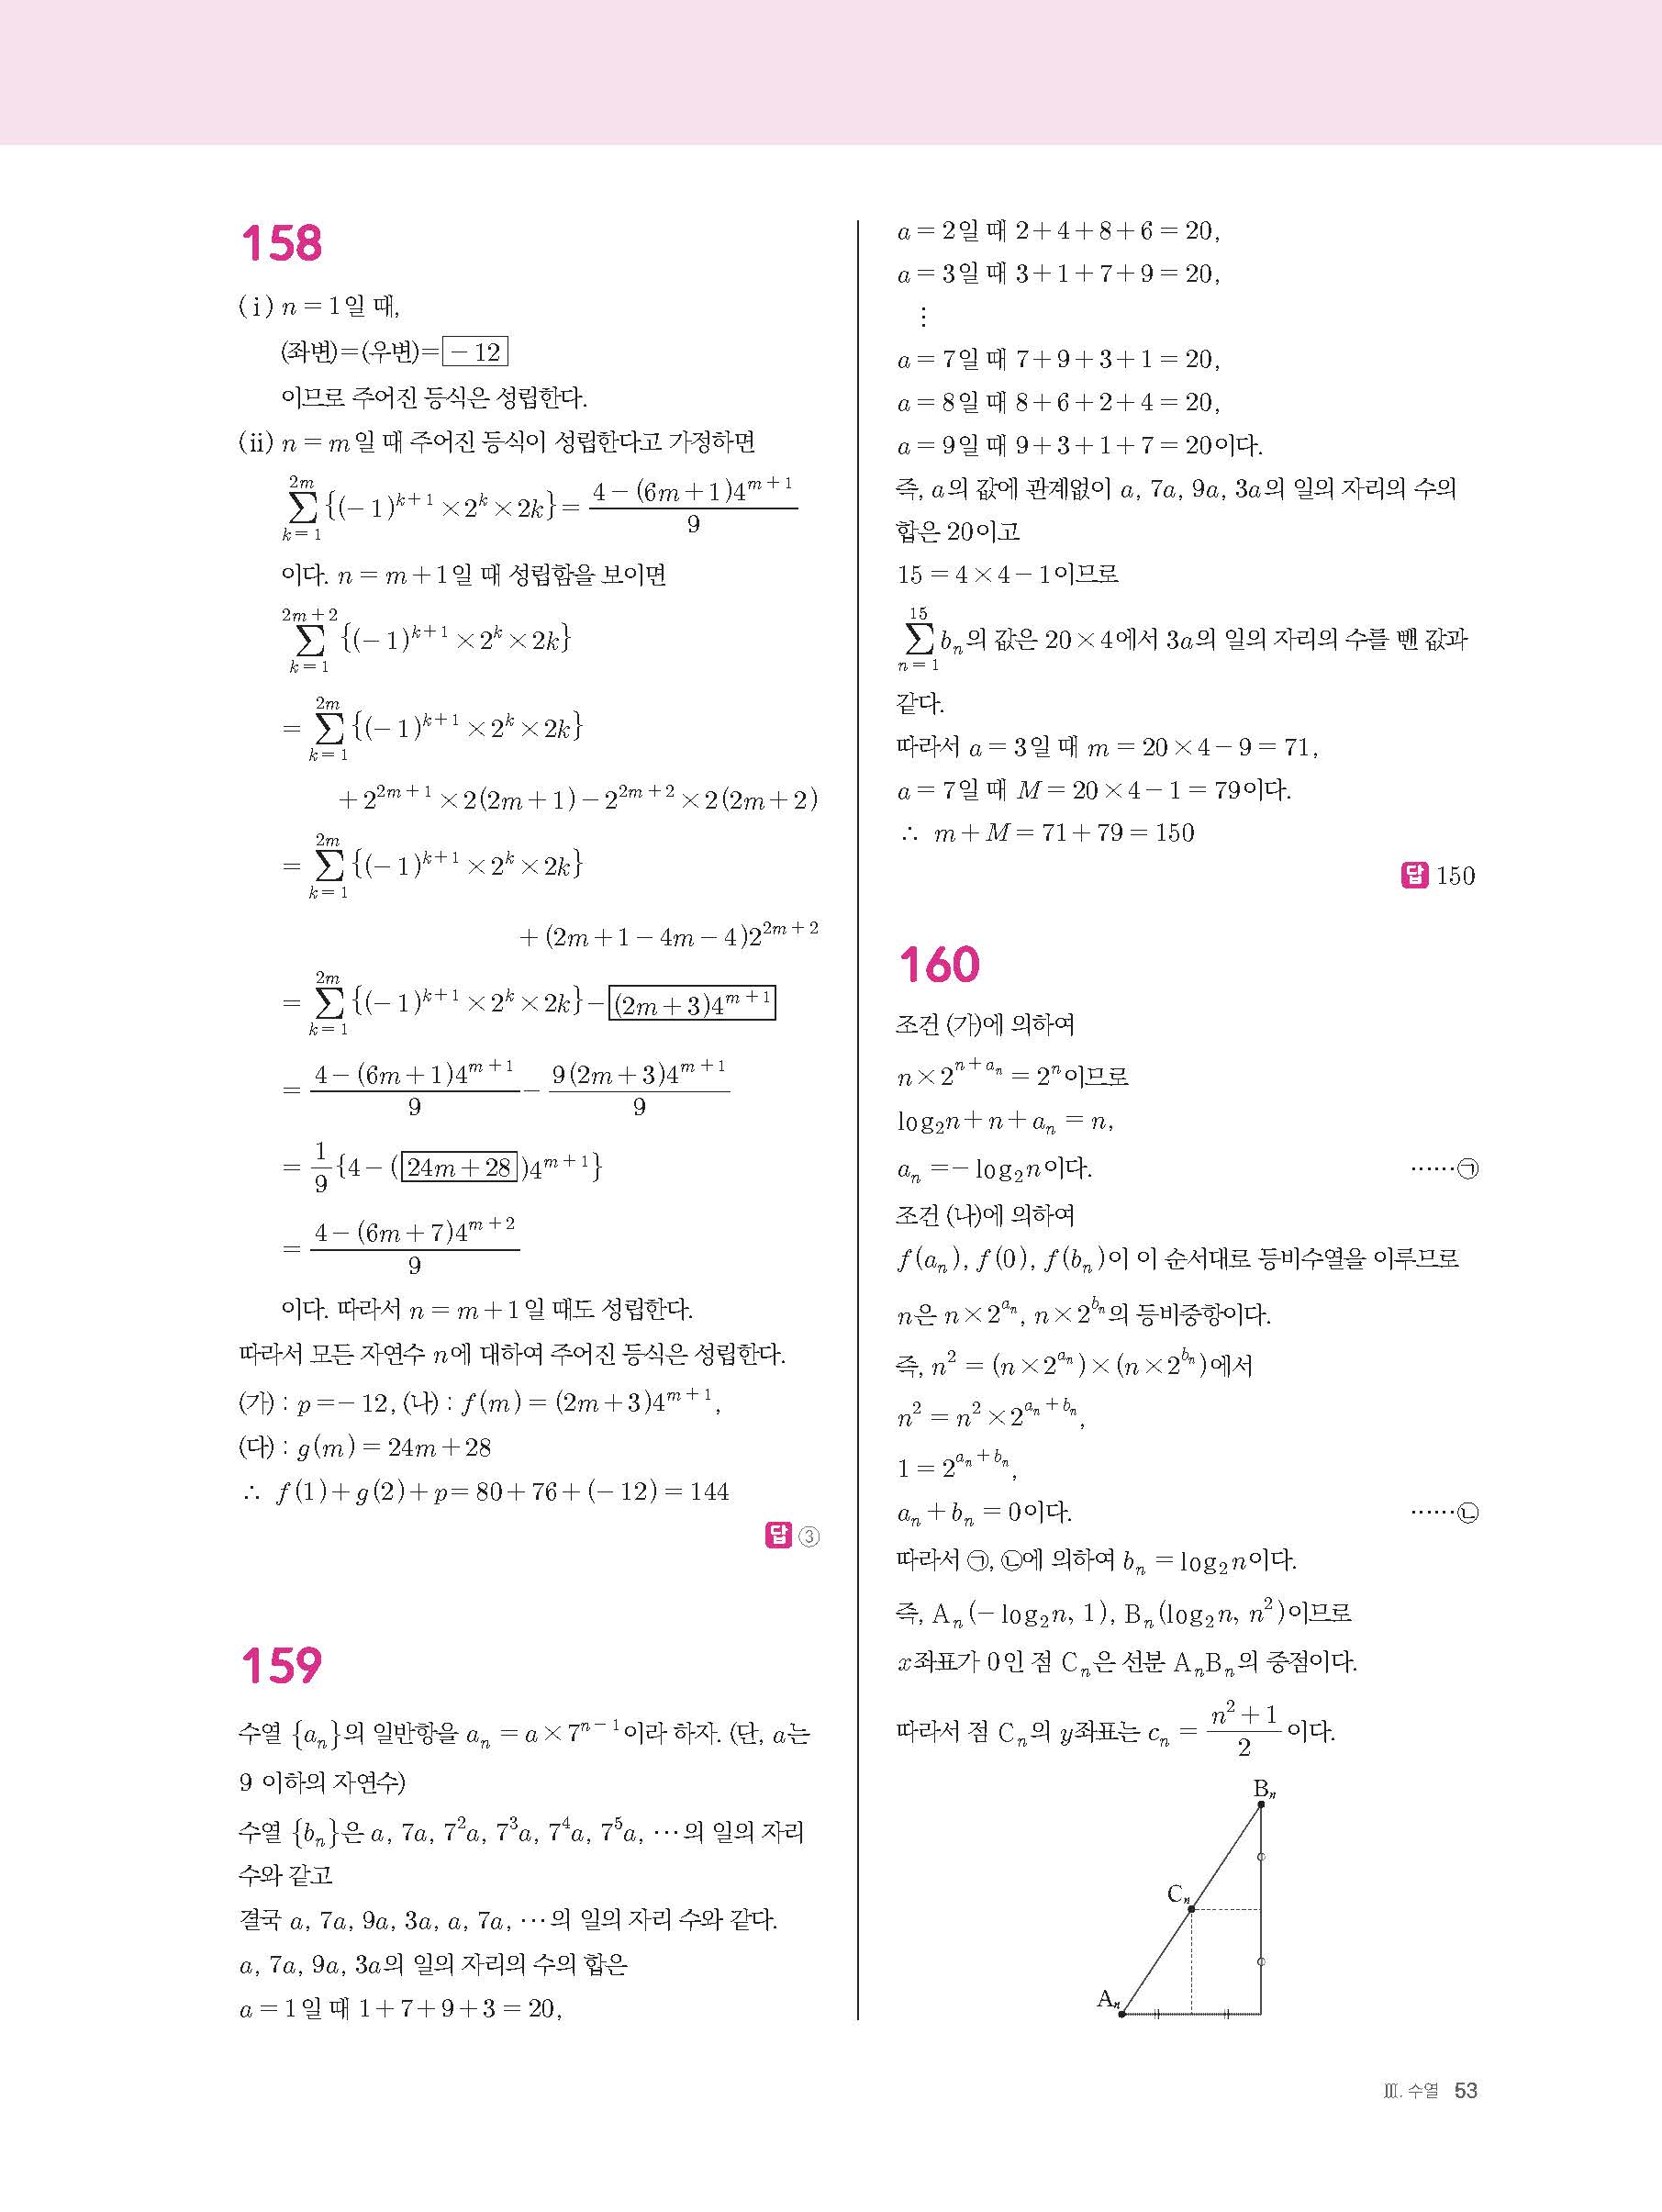 158
(ⅰ) n = 1일 때,
(좌변)=(우변)= -12
이므로 주어진 등식은 성립한다.
(ⅱ) n = m일 때 주어진 등식이 성립한다고 가정하면
\sum_{k=1}^{2m} {(-1)^{k+1} × 2^k × 2k} = \frac{4-(6m+1)4^{m+1}}{9}
이다. n = m+1일 때 성립함을 보이면
\sum_{k=1}^{2m+2} {(-1)^{k+1} × 2^k × 2k}
= \sum_{k=1}^{2m} {(-1)^{k+1} × 2^k × 2k}
+2^{2m+1} × 2(2m+1) - 2^{2m+2} × 2(2m+2)
= \sum_{k=1}^{2m} {(-1)^{k+1} × 2^k × 2k}
+(2m+1-4m-4)2^{2m+2}
= \sum_{k=1}^{2m} {(-1)^{k+1} × 2^k × 2k} - (2m+3)4^{m+1}
= \frac{4-(6m+1)4^{m+1}}{9} - \frac{9(2m+3)4^{m+1}}{9}
= \frac{1}{9}{4-(24m+28)4^{m+1}}
= \frac{4-(6m+7)4^{m+2}}{9}
이다. 따라서 n = m+1일 때도 성립한다.
따라서 모든 자연수 n에 대하여 주어진 등식은 성립한다.
(가) : p = -12, (나) : f(m) = (2m+3)4^{m+1},
(다) : g(m) = 24m+28
∴ f(1)+g(2)+p = 80+76+(-12) = 144
답 ③
159
수열 {a_n}의 일반항을 a_n = a×7^{n-1}이라 하자. (단, a는
9 이하의 자연수)
수열 {b_n}은 a, 7a, 7^2a, 7^3a, 7^4a, 7^5a, ⋯의 일의 자리
수와 같고
결국 a, 7a, 9a, 3a, a, 7a, ⋯의 일의 자리 수와 같다.
a, 7a, 9a, 3a의 일의 자리의 수의 합은
a = 1일 때 1+7+9+3 = 20,
a = 2일 때 2+4+8+6 = 20,
a = 3일 때 3+1+7+9 = 20,
⋮
a = 7일 때 7+9+3+1 = 20,
a = 8일 때 8+6+2+4 = 20,
a = 9일 때 9+3+1+7 = 20이다.
즉, a의 값에 관계없이 a, 7a, 9a, 3a의 일의 자리의 수의
합은 20이고
15 = 4×4-1이므로
\sum_{n=1}^{15} b_n의 값은 20×4에서 3a의 일의 자리의 수를 뺀 값과
같다.
따라서 a = 3일 때 m = 20×4-9 = 71,
a = 7일 때 M = 20×4-1 = 79이다.
∴ m+M = 71+79 = 150
답 150
160
조건 (가)에 의하여
n×2^{n+a_n} = 2^n이므로
log_2 n+n+a_n = n,
a_n = -log_2 n이다. ⋯⋯㉠
조건 (나)에 의하여
f(a_n), f(0), f(b_n)이 이 순서대로 등비수열을 이루므로
n은 n×2^{a_n}, n×2^{b_n}의 등비중항이다.
즉, n^2 = (n×2^{a_n})×(n×2^{b_n})에서
n^2 = n^2×2^{a_n+b_n},
1 = 2^{a_n+b_n},
a_n+b_n = 0이다. ⋯⋯㉡
따라서 ㉠, ㉡에 의하여 b_n = log_2 n이다.
즉, A_n(-log_2 n, 1), B_n(log_2 n, n^2)이므로
x좌표가 0인 점 C_n은 선분 A_nB_n의 중점이다.
따라서 점 C_n의 y좌표는 c_n = \frac{n^2+1}{2}이다.
B_n
C_n
A_n
Ⅲ. 수열 53